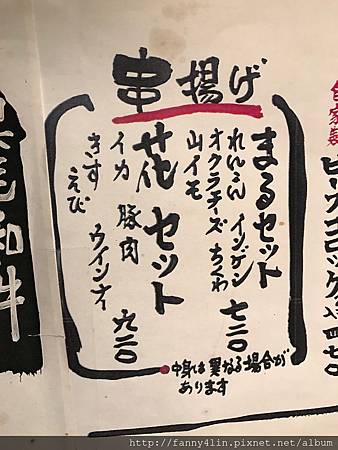 串揚げ
まるセット
れんこん インゲン
オクラチーズ ちくわ
山イモ
七二〇
花セット
イカ 豚肉
きす ウインナー
えび
九二〇
中身は異なる場合が
あります
自家製
和牛
http://fanny4lin.pixnet.net/album